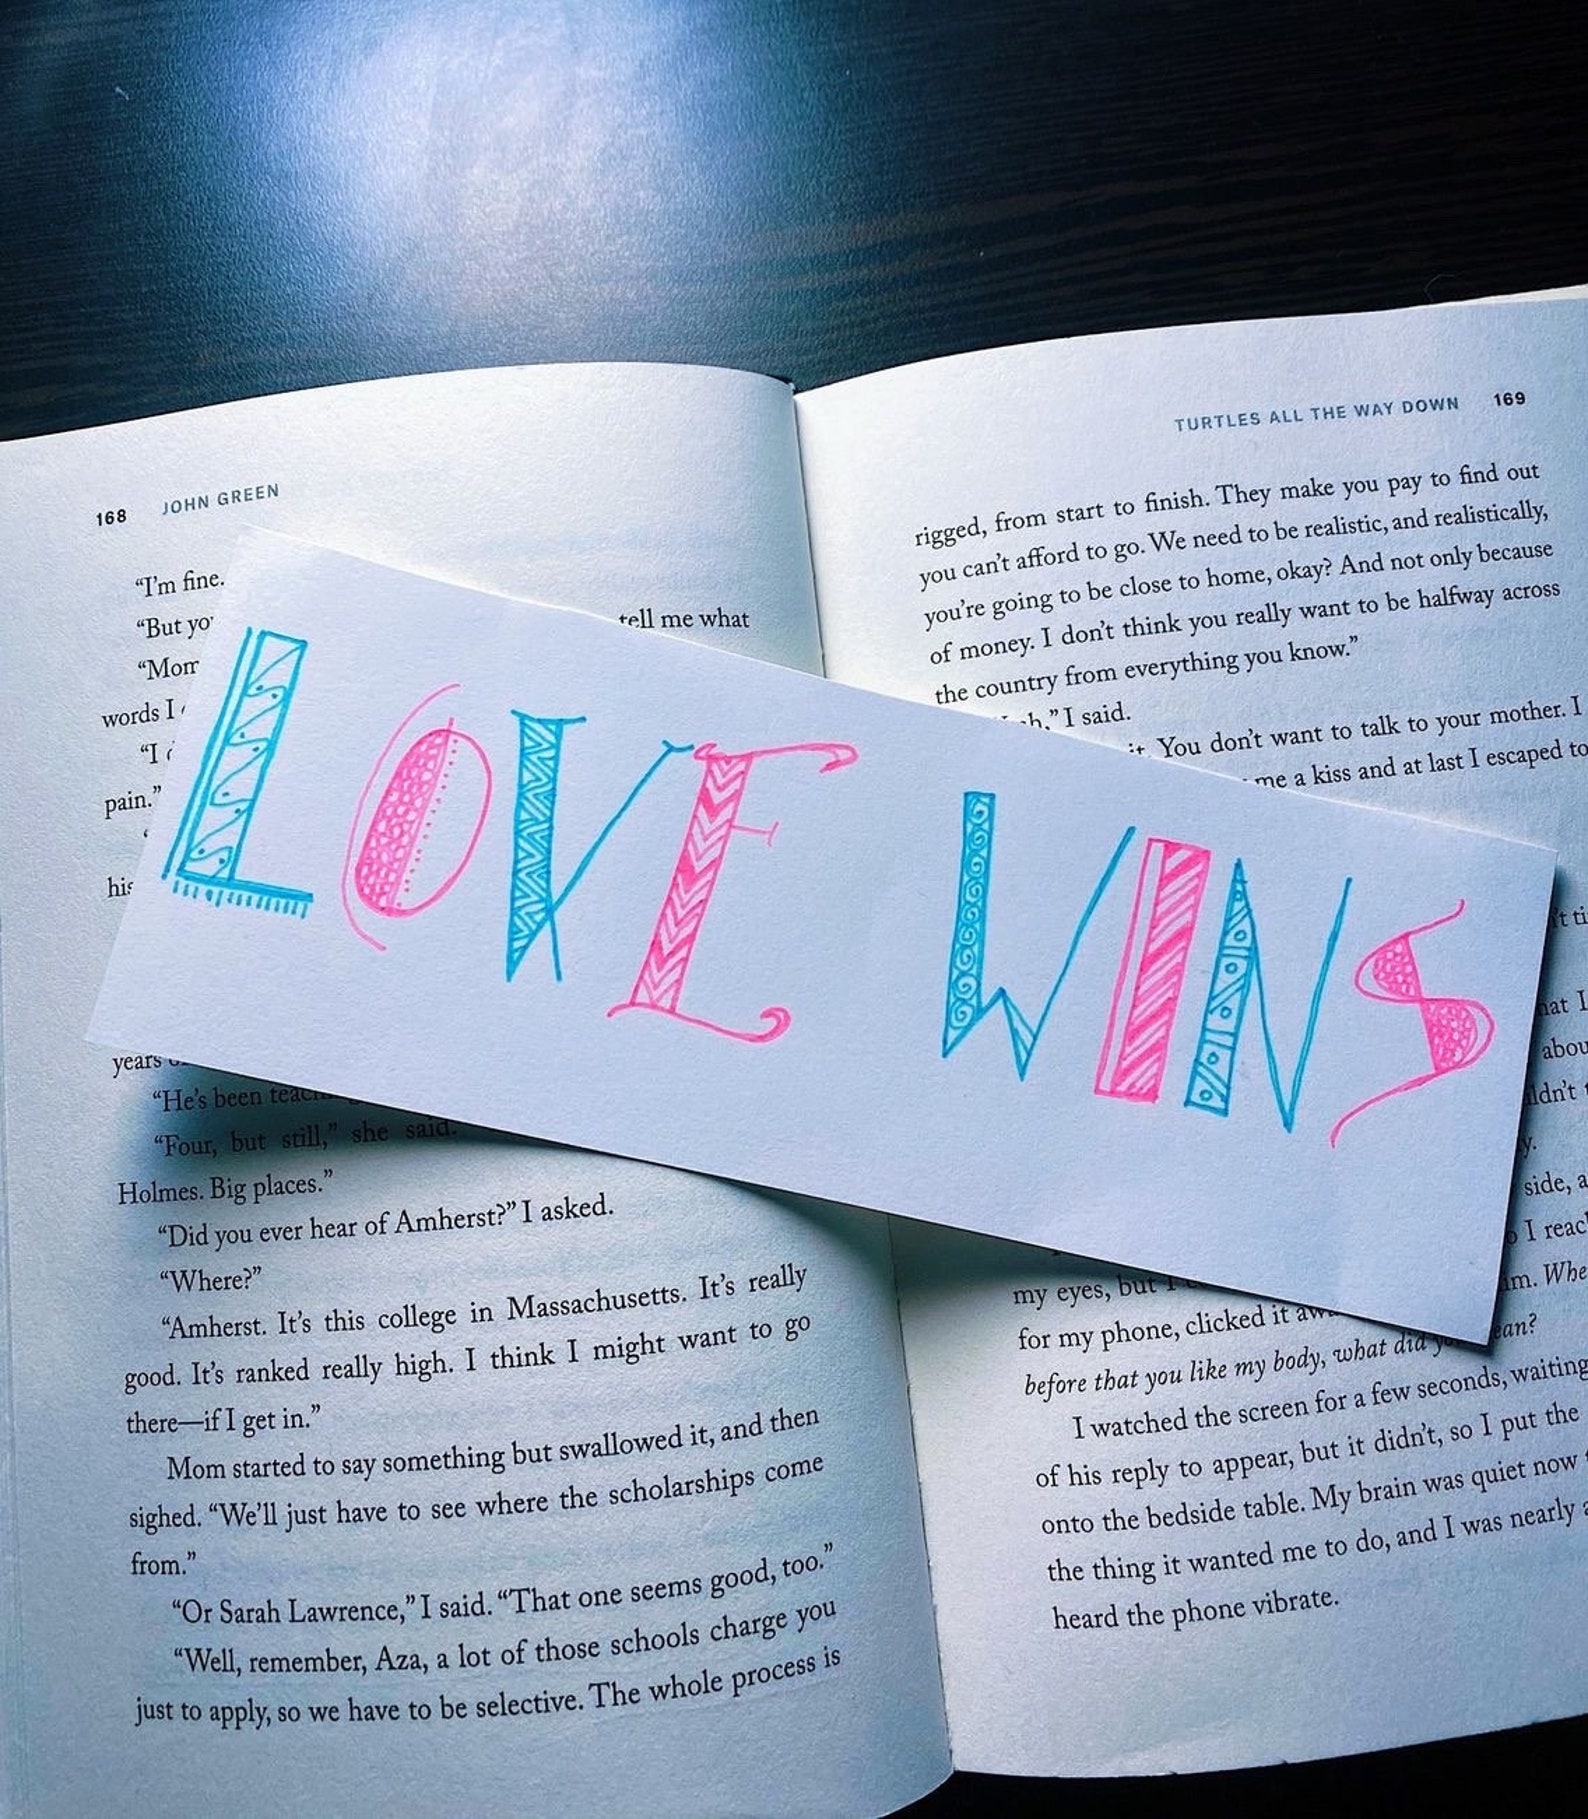 168 JOHN GREEN
“I’m fine.
“But
tell me what
“Mom
words I
“I
pain.”
his
years
“He’s been
“Four, but still,” she said.
Holmes. Big places.”
“Did you ever hear of Amherst?” I asked.
“Where?”
“Amherst. It’s this college in Massachusetts. It’s really
good. It’s ranked really high. I think I might want to go
there—if I get in.”
Mom started to say something but swallowed it, and then
sighed. “We’ll just have to see where the scholarships come
from.”
“Or Sarah Lawrence,” I said. “That one seems good, too.”
“Well, remember, Aza, a lot of those schools charge you
just to apply, so we have to be selective. The whole process is
LOVE WINS
TURTLES ALL THE WAY DOWN 169
rigged, from start to finish. They make you pay to find out
you can’t afford to go. We need to be realistic, and realistically,
you’re going to be close to home, okay? And not only because
of money. I don’t think you really want to be halfway across
the country from everything you know.”
I said.
You don’t want to talk to your mother. I
me a kiss and at last I escaped to
I
side, a
I
my eyes, but I
for my phone, clicked it
before that you like my body, what did
I watched the screen for a few seconds, waiting
of his reply to appear, but it didn’t, so I put the
onto the bedside table. My brain was quiet now
the thing it wanted me to do, and I was nearly
heard the phone vibrate.